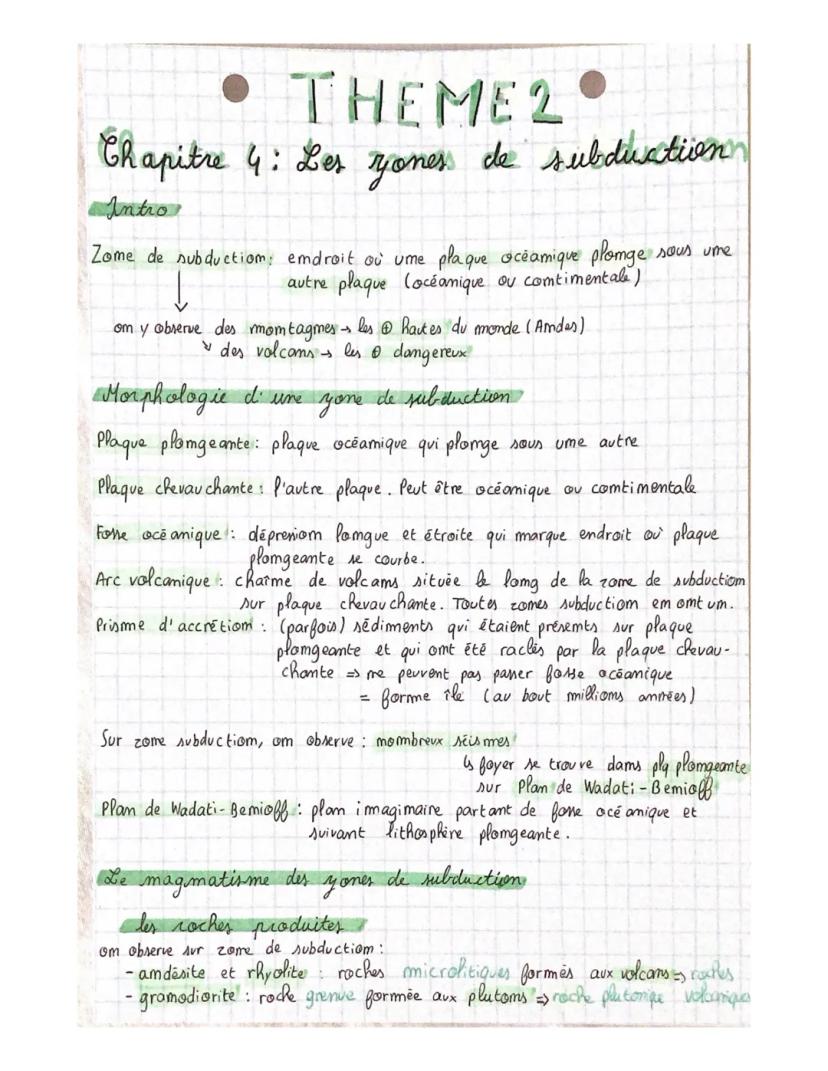 THEME 2
Chapitre 4 : Les zones de subduction
Intro
Zone de subduction : endroit où une plaque océanique plonge sous une
autre plaque (océanique ou continentale)
on y observe des montagnes → les ⊕ hautes du monde (Andes)
↘ des volcans → les ⊕ dangereux
Morphologie d'une zone de subduction
Plaque plongeante : plaque océanique qui plonge sous une autre
Plaque chevauchante : l'autre plaque. Peut être océanique ou continentale
Fosse océanique : dépression longue et étroite qui marque endroit où plaque
plongeante se courbe.
Arc volcanique : chaîne de volcans située le long de la zone de subduction
sur plaque chevauchante. Toutes zones subduction en ont un.
Prisme d'accrétion : (parfois) sédiments qui étaient présents sur plaque
plongeante et qui ont été raclés par la plaque chevau-
chante ⇒ ne peuvent pas passer fosse océanique
= forme île (au bout millions années)
Sur zone subduction, on observe : nombreux séismes
↳ foyer se trouve dans plq plongeante
sur Plan de Wadati-Benioff
Plan de Wadati-Benioff : plan imaginaire partant de fosse océanique et
suivant lithosphère plongeante.
Le magmatisme des zones de subduction
les roches produites
on observe sur zone de subduction :
- andésite et rhyolite : roches microlitiques formés aux volcans ⇒ roches
volcaniques
- granodiorite : roche grenue formée aux plutons ⇒ roche plutonique